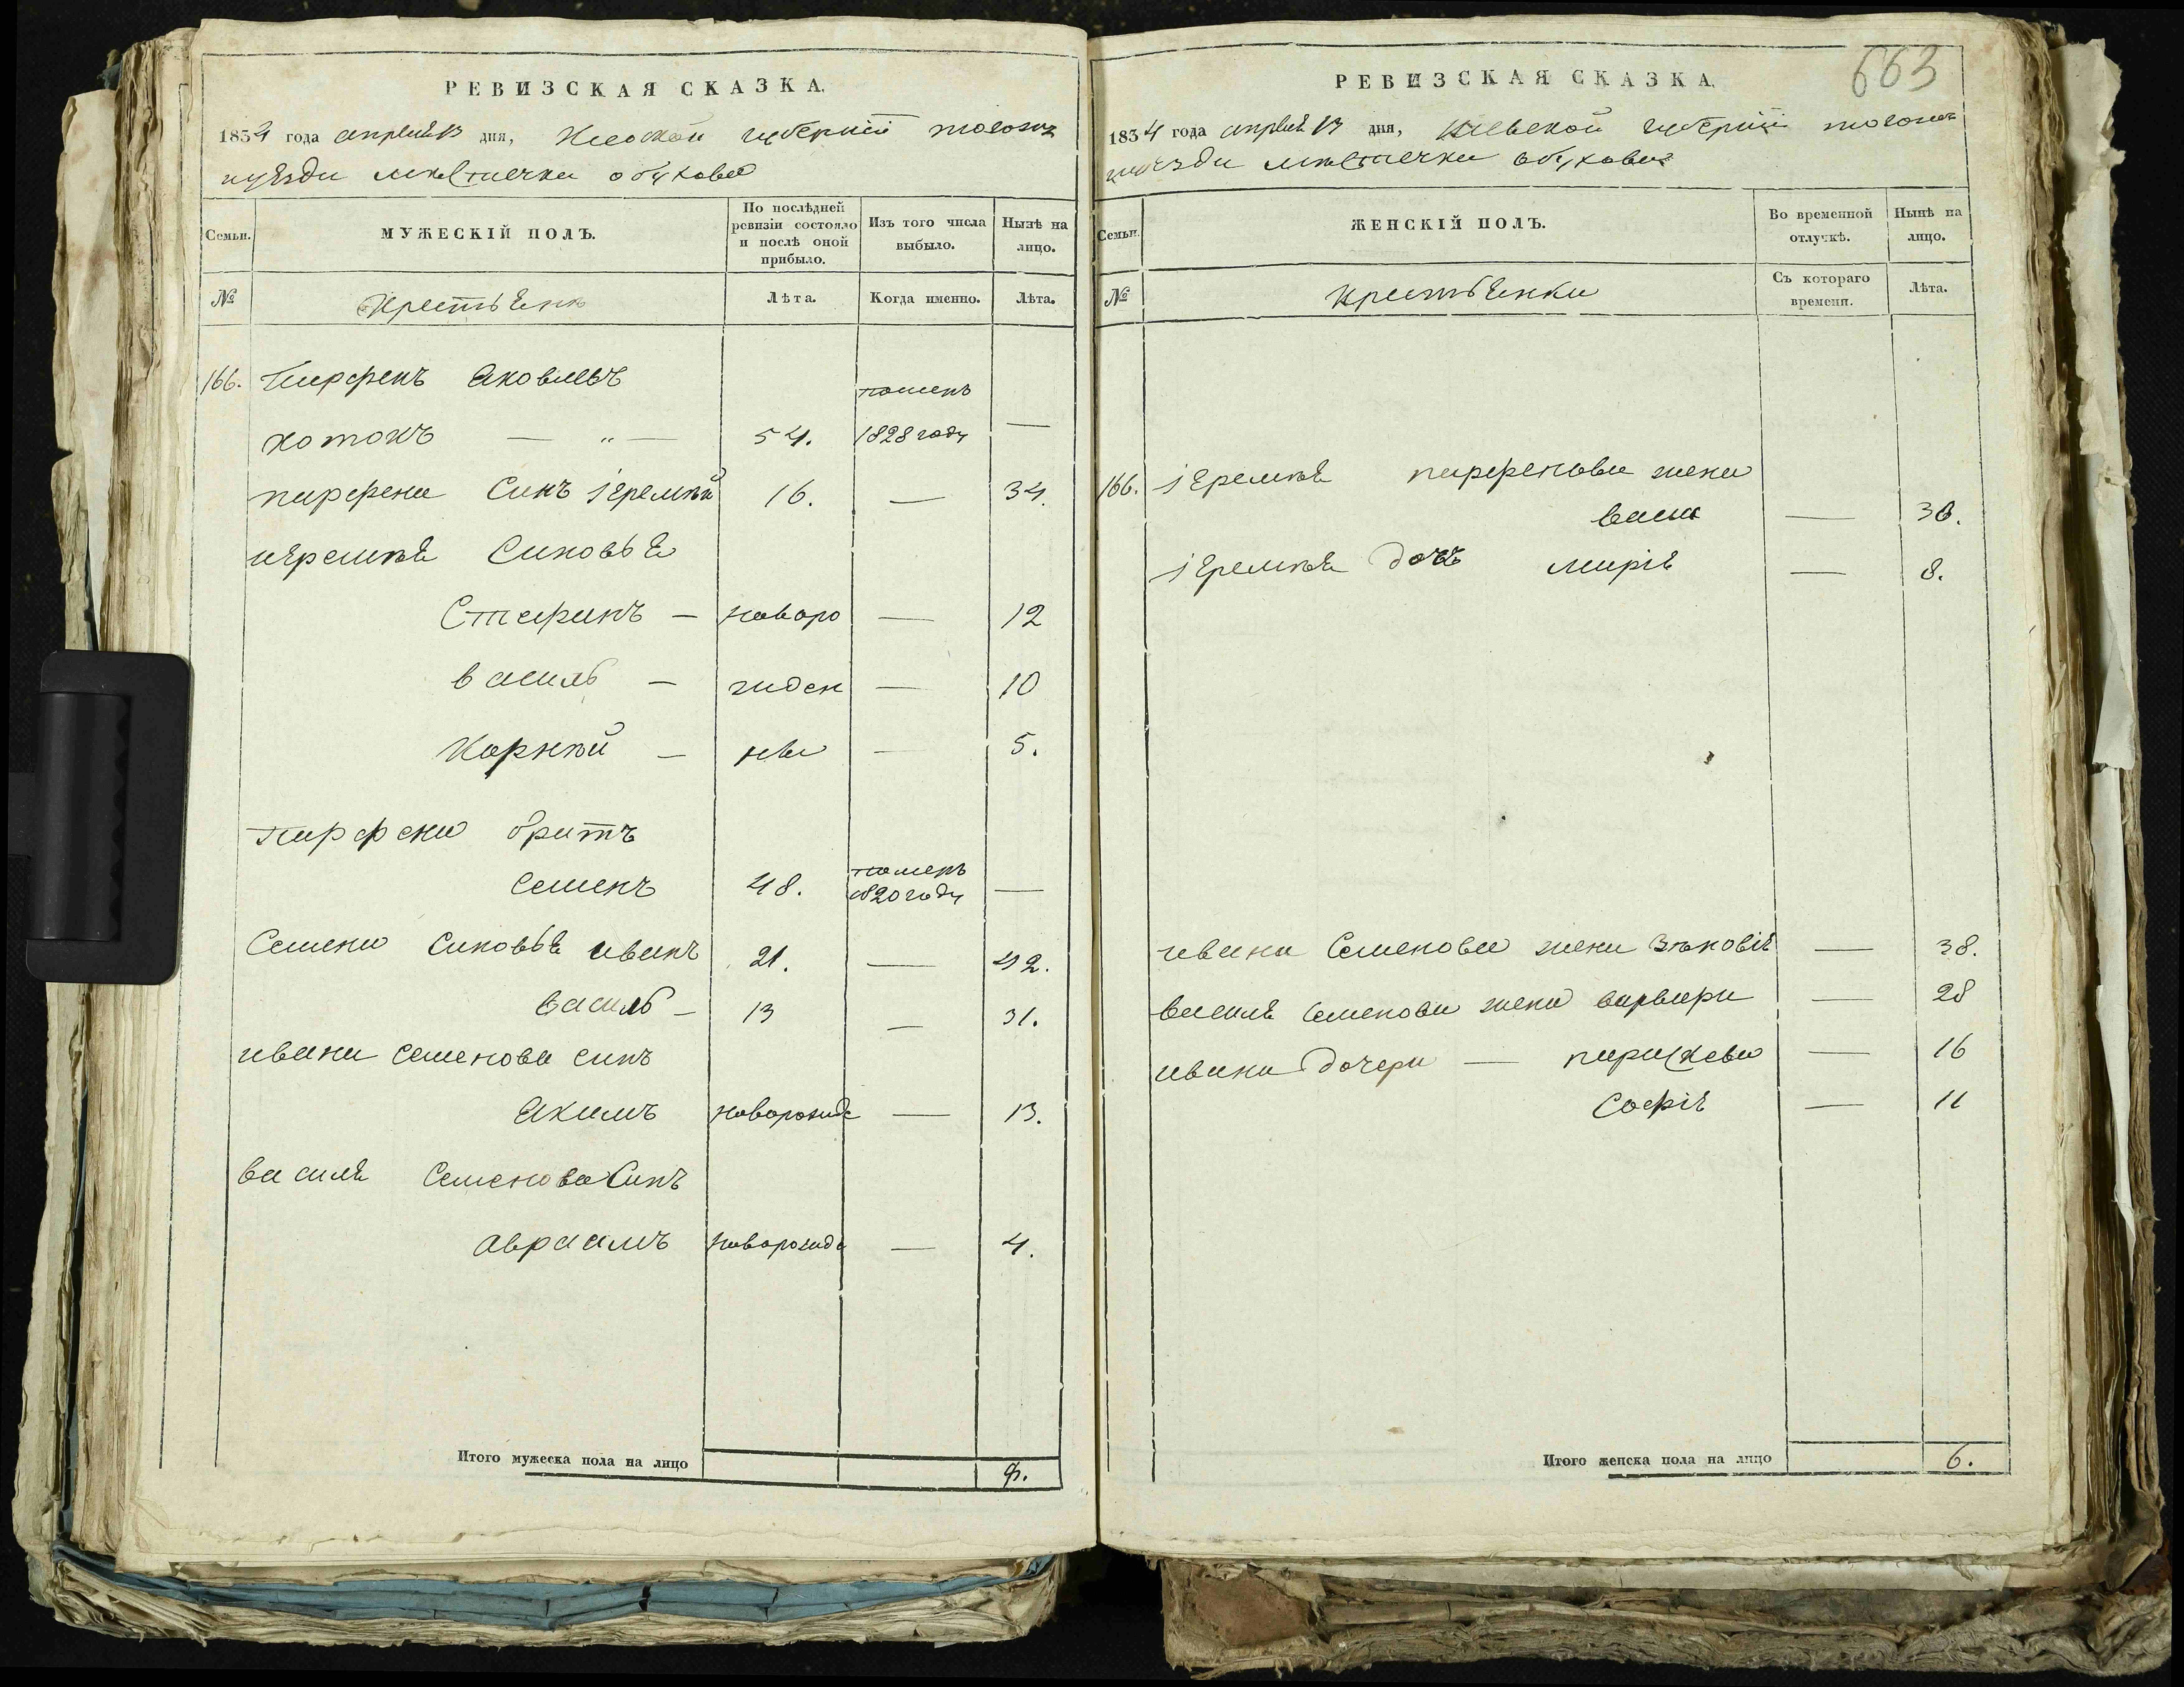 РЕВИЗСКАЯ СКАЗКА.
1834 года апреля 13 дня, Киевской губернiи тогожъ
уезда местечка обухова
Семьи.
МУЖЕСКІЙ ПОЛЪ.
По послѣдней ревизіи состояло и послѣ оной прибыло.
Изъ того числа выбыло.
Нынѣ на лицо.
№
Крестьяне
Лѣта.
Когда именно.
Лѣта.
166. Парфенъ Яковлевъ
померъ
котокъ — „ — 54. 1828 году —
парфена Синъ іеремѣй 16. — 34.
иеремѣя Синовья
Стефанъ — новоро — 12
василь — жден — 10
Корнѣй — ные — 5.
парфена братъ
померъ
Семенъ 48. 1820 году —
Семена Синовья иванъ 21. — 42.
василь — 13 — 31.
ивана семенова синъ
Якимъ новорожде — 13.
василя Семенова Синъ
авраамъ новорожде — 4.
Итого мужеска пола на лицо 9.
663
РЕВИЗСКАЯ СКАЗКА.
1834 года апреля 13 дня, Киевской губернiи тогожъ
уезда местечка обухова
Семьи.
ЖЕНСКІЙ ПОЛЪ.
Во временной отлучкѣ.
Нынѣ на лицо.
№
Крестьянки
Съ котораго времени.
Лѣта.
166. іеремѣя парфенова жена
— 30.
іеремѣя дочъ маріе — 8.
ивана Семенова жена Зѣновія — 38.
василя Семенова жена варвара — 28
ивана дочери — параскева — 16
Софія — 11
Итого женска пола на лицо 6.